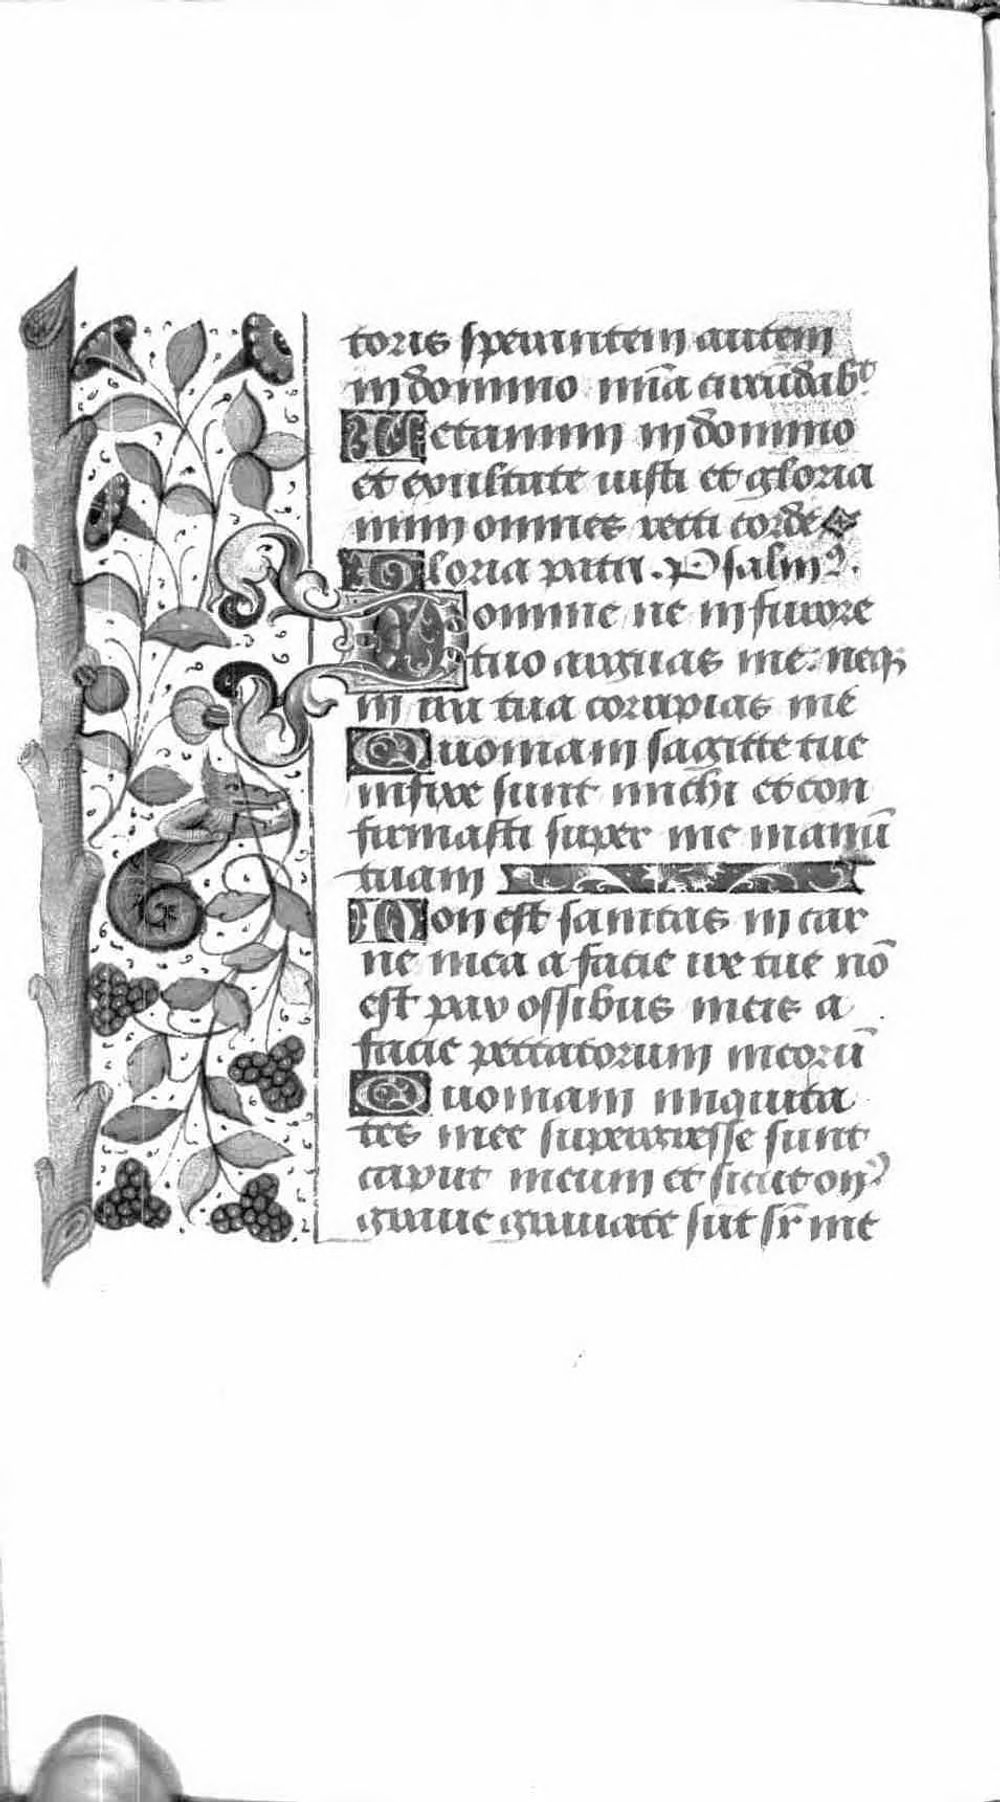 toris sperantem autem
in domino mīa circūdabᵗ.
Letamini in domino
et exultate iusti et gloria
mini omnes recti corde
Gloria patri. Psalmꝰ.
Domine ne in furore
tuo arguas me: neqꝫ
in ira tua corripias me
Quoniam sagitte tue
infixe sunt michi et con
firmasti super me manū
tuam
Non est sanitas in car
ne mea a facie ire tue nō
est pax ossibus meis a
facie peccatorum meorū
Quoniam iniquita
tes mee supergresse sunt
caput meum et sicut onꝰ
graue grauate sūt sr̄ me